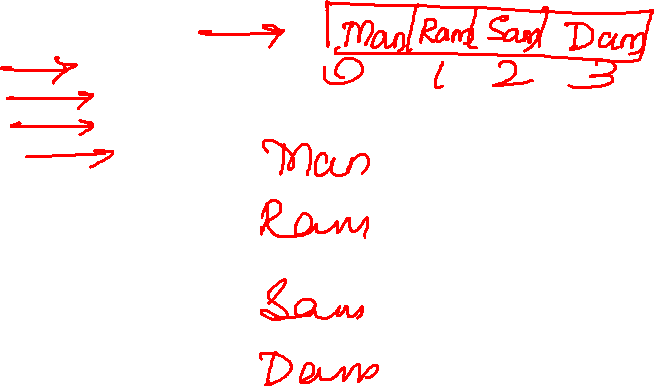 Man Ram Sam Dam
0 1 2 3
Man
Ram
Sam
Dam